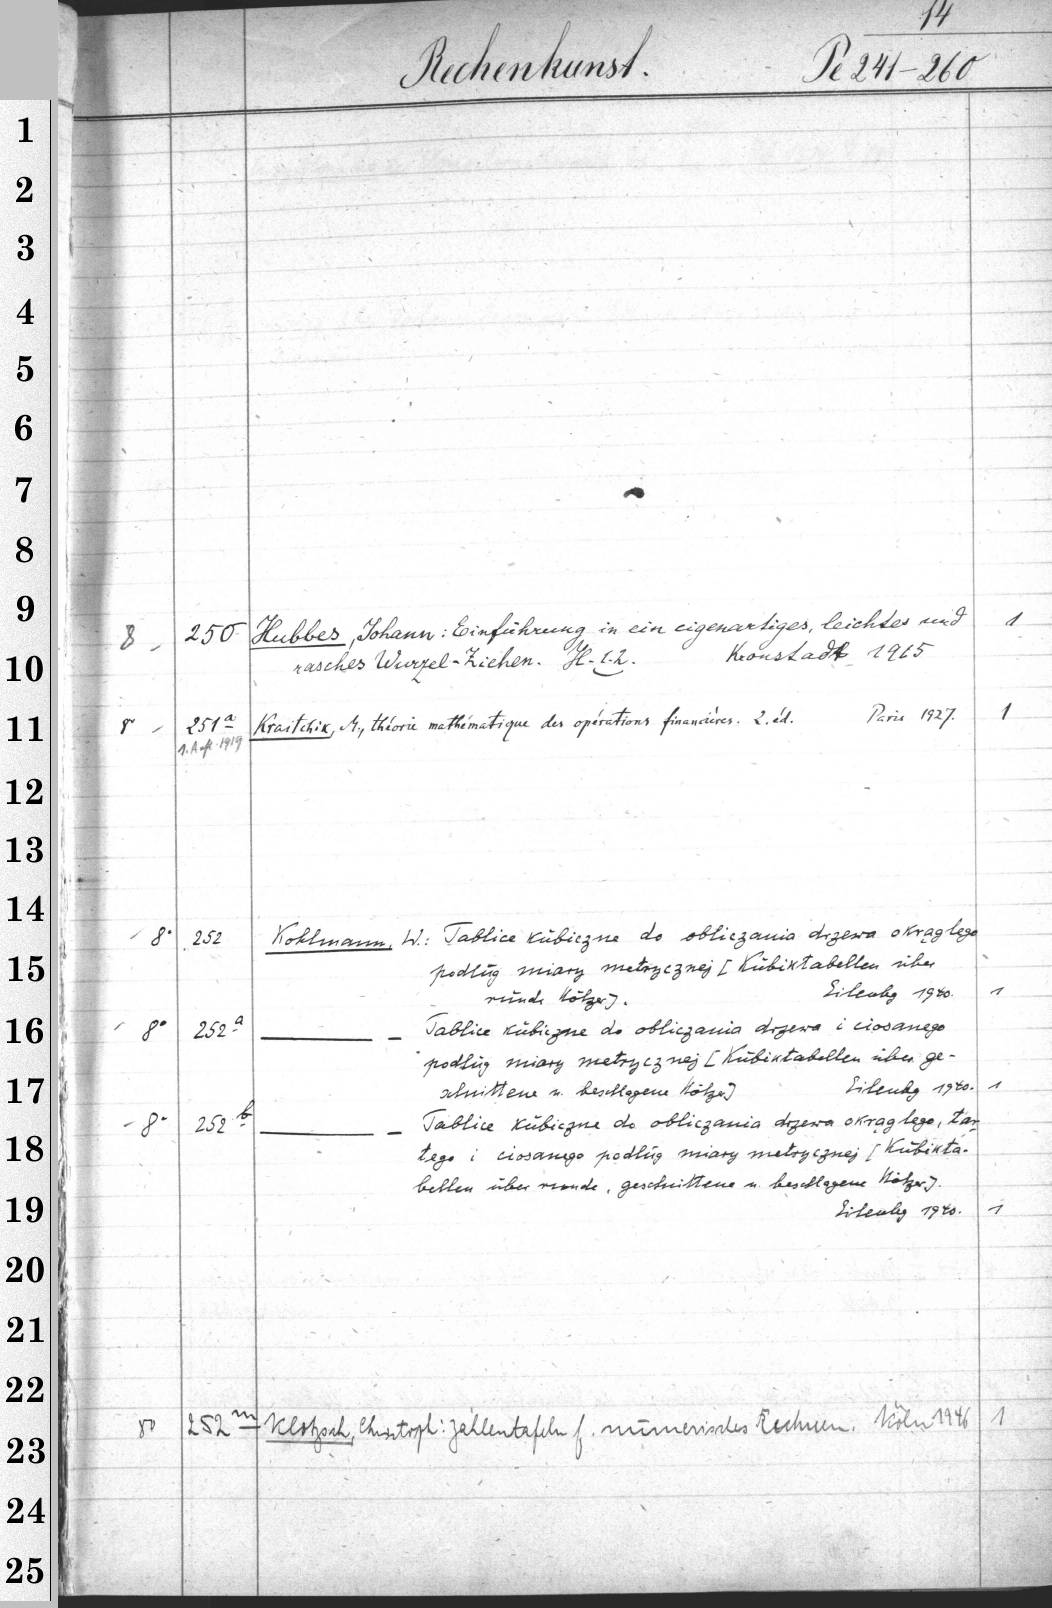 14
Rechenkunst. Pe 241-260
1
2
3
4
5
6
7
8
9
8 250 Hubbes, Johann: Einführung in ein eigenartiges, leichtes und 1
10 rasches Wurzel-Ziehen. H. 1.2. Kronstadt 1915
11 8° 251a Kraitchik, M., théorie mathématique des opérations financières. 2. éd. Paris 1927. 1
1. Aufl. 1919
12
13
14
8° 252 Kohlmann, W.: Tablice kubiczne do obliczania drzewa okrągłego
15 podług miary metrycznej [Kubiktabellen über
runde Hölzer]. Eilenbg 1940. 1
16 8° 252a ——— — Tablice kubiczne do obliczania drzewa i ciosanego
podług miary metrycznej [Kubiktabellen über ge-
17 schnittene u. beschlagene Hölzer] Eilenbg 1940. 1
8° 252b ——— — Tablice kubiczne do obliczania drzewa okrągłego, tar-
18 tego i ciosanego podług miary metrycznej [Kubikta-
bellen über runde, geschnittene u. beschlagene Hölzer].
19 Eilenbg 1940. 1
20
21
22
8° 252m Klotzsch, Christoph: Zahlentafeln f. numerisches Rechnen. Köln 1946 1
23
24
25